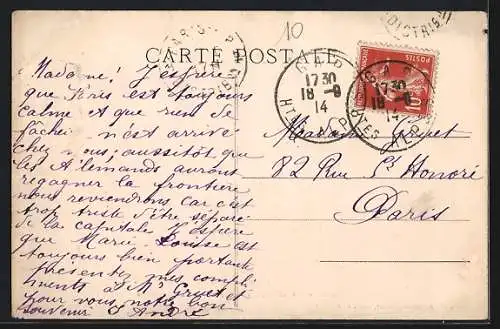 10
CARTE POSTALE
GIAP
17 30
18 - 9
14
HTES PYRENEES
POSTES
10
Madame ! J'espère
que Paris est toujours
calme et que rien de
fâcheux n'est arrivé
chez vous; aussitôt que
les Allemands auront
regagner la frontière
nous reviendrons car c'est
trop triste d'être séparé
de la capitale J'espère
que Marie Louise est
toujours bien portante
présentez mes compli-
ments à Mr Gruet et
pour vous notre bon
souvenir André
Madame Gruet
82 Rue St Honoré
Paris